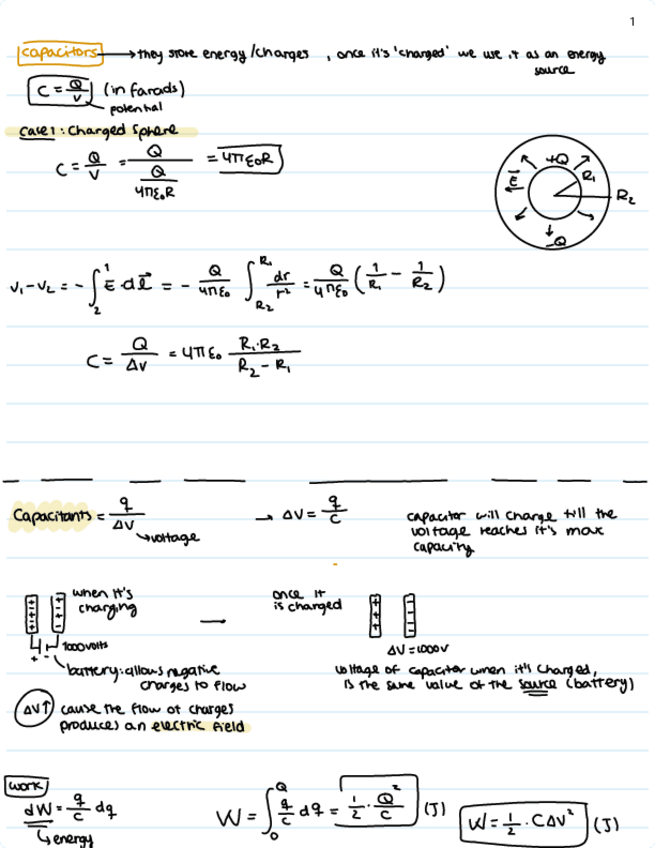 1
Capacitors → they store energy/charges, once it's 'charged' we use it as an energy
source
C = Q/V (in farads)
potential
Case 1: Charged Sphere
C = Q/V = Q/(Q/4πε₀R) = 4πε₀R
+Q
R₁
E
R₂
-Q
V₁-V₂ = -∫₂¹ E⃗·dl⃗ = -Q/4πε₀ ∫_{R₂}^{R₁} dr/r² = Q/4πε₀ (1/R₁ - 1/R₂)
C = Q/ΔV = 4πε₀ R₁·R₂/(R₂-R₁)
Capacitants = q/ΔV → ΔV = q/C
↳voltage
capacitor will charge till the
voltage reaches it's max
capacity
when it's
charging
once it
is charged
1000volts
+ -
ΔV = 1000V
battery: allows negative
charges to flow
voltage of capacitor when it's charged,
is the same value of the source (battery)
ΔV↑ cause the flow of charges
produces an electric field
work
dW = q/C dq
↳energy
W = ∫₀^Q q/C dq = 1/2 · Q²/C (J)
W = 1/2 · CΔV² (J)